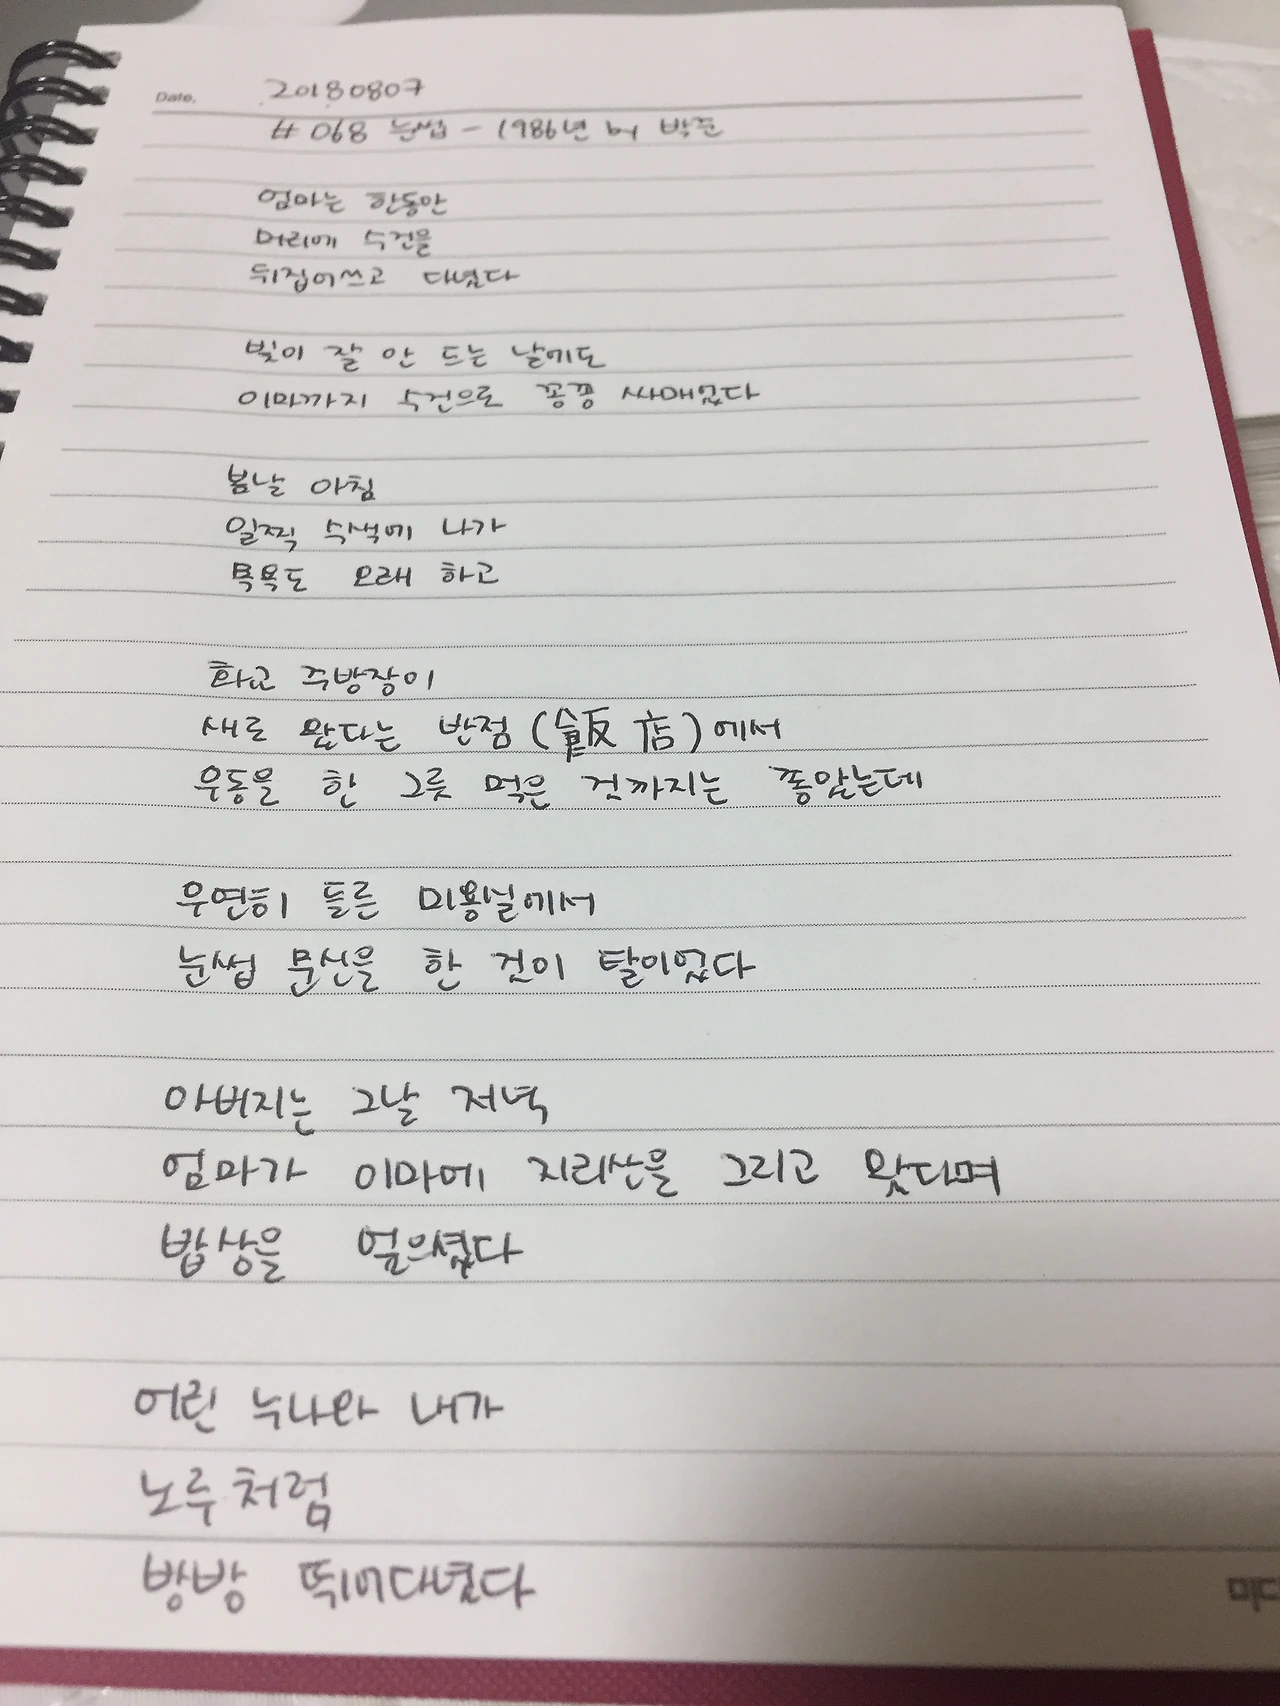 Date. 20180807
# 068 눈썹 - 1986년 by 박준
엄마는 한동안
머리에 수건을
뒤집어쓰고 다녔다
빛이 잘 안 드는 날에도
이마까지 수건으로 꽁꽁 싸매었다
봄날 아침
일찍 수색에 나가
목욕도 오래 하고
화교 주방장이
새로 왔다는 반점(飯店)에서
우동을 한 그릇 먹은 것까지는 좋았는데
우연히 들른 미용실에서
눈썹 문신을 한 것이 탈이었다
아버지는 그날 저녁
엄마가 이마에 지리산을 그리고 왔다며
밥상을 엎으셨다
어린 누나와 내가
노루처럼
방방 뛰어다녔다